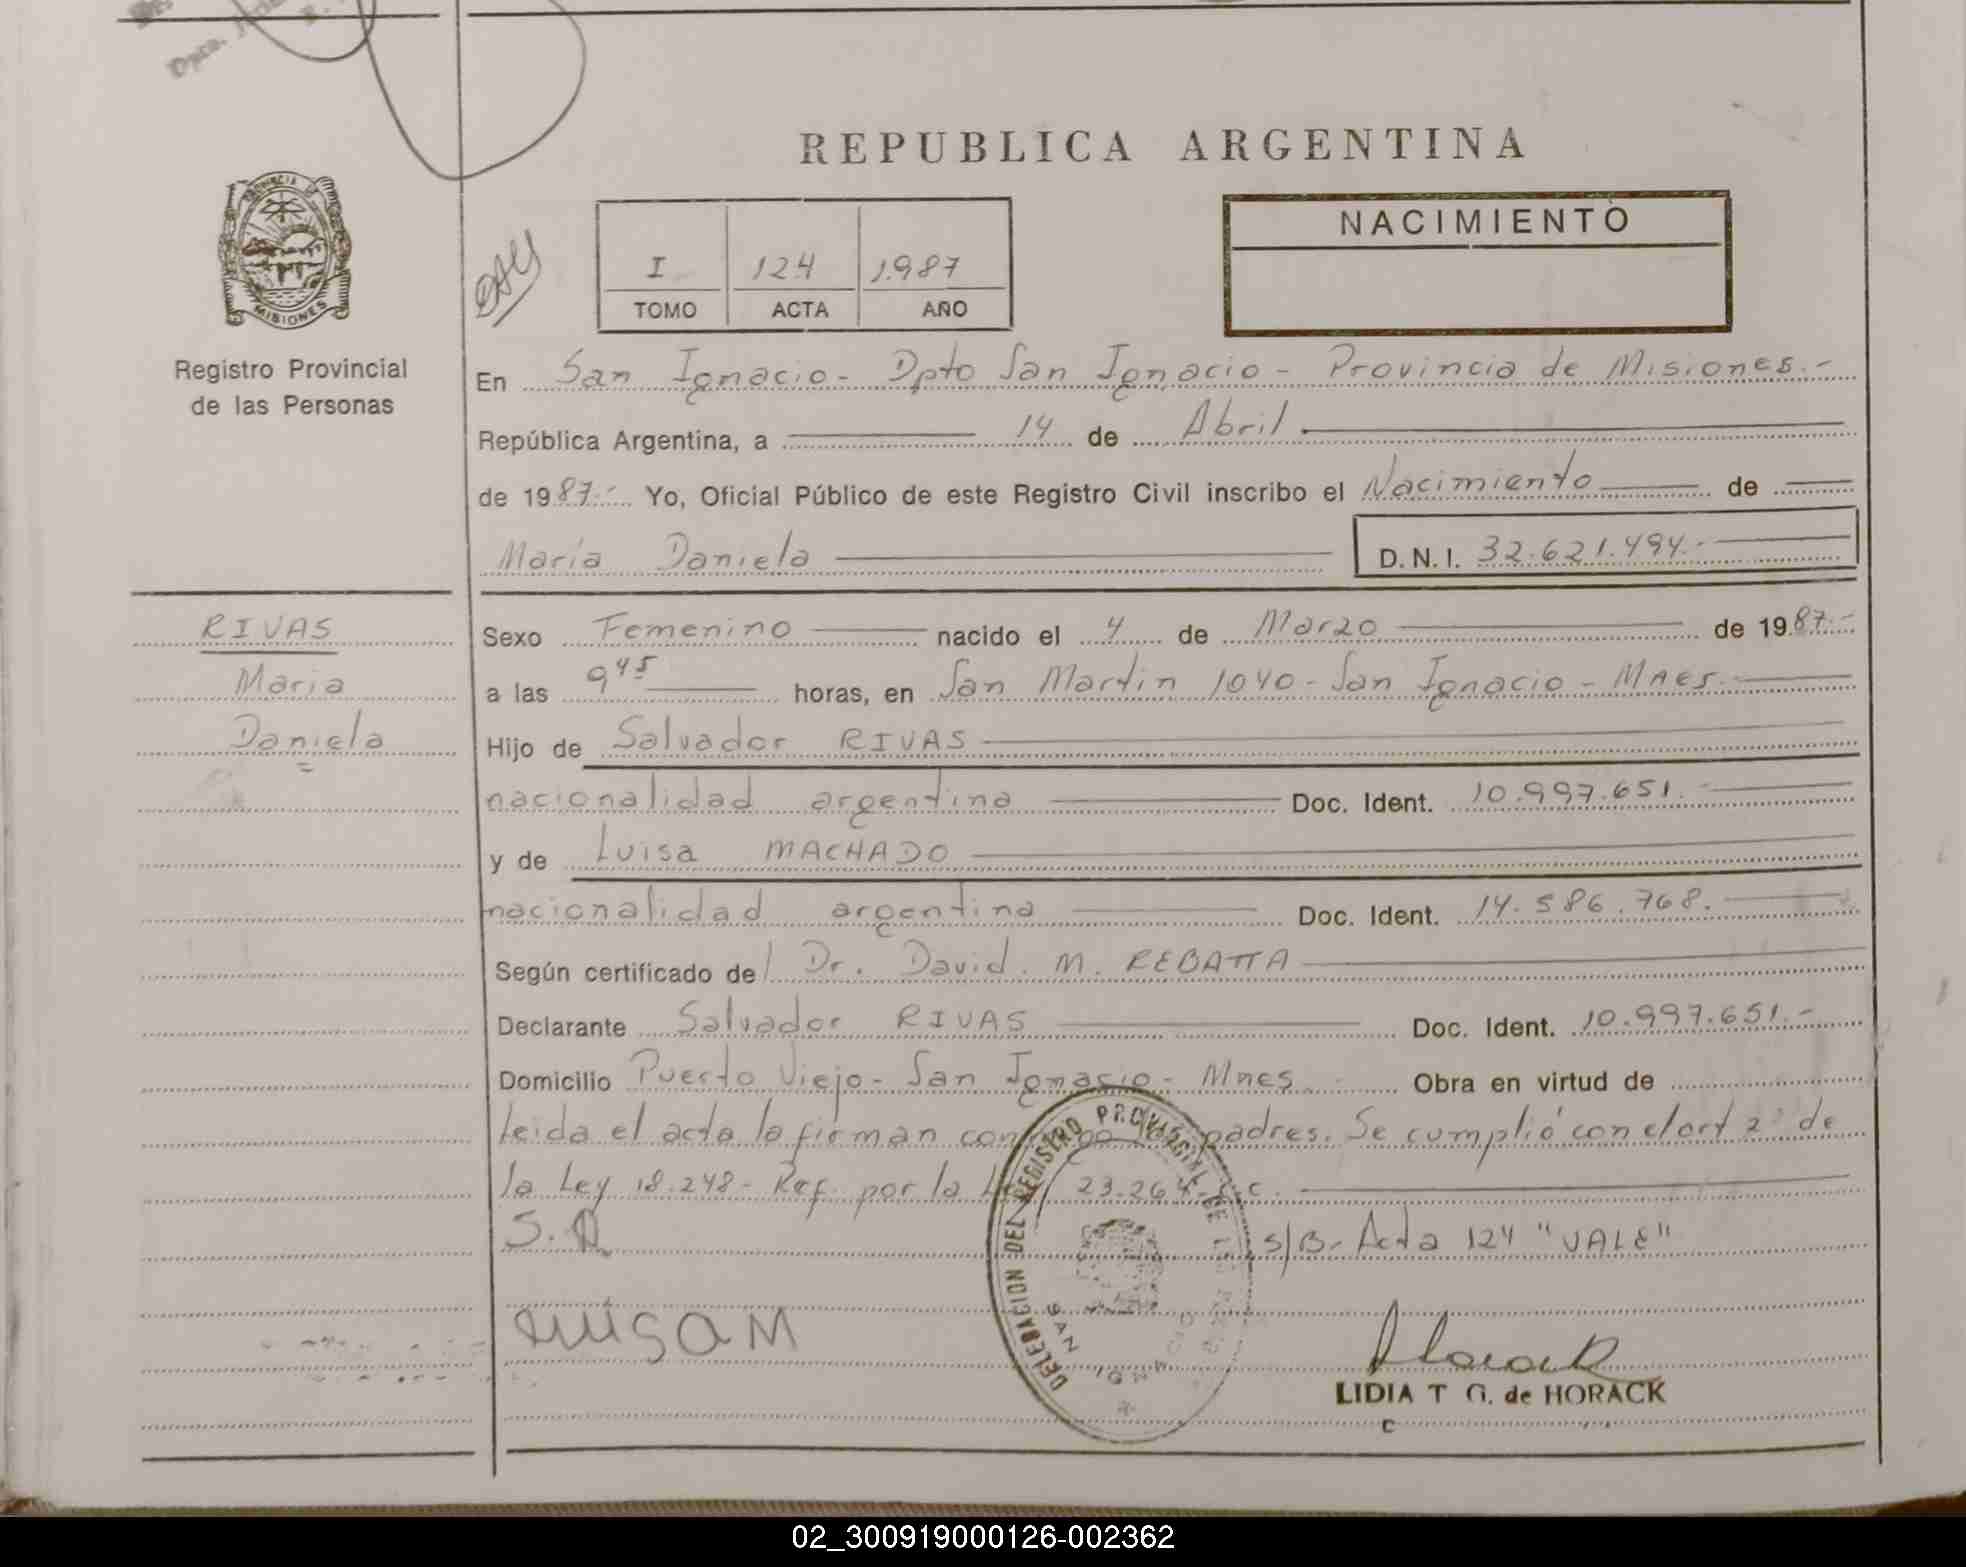 Dpto.
REPUBLICA ARGENTINA
PROVINCIA
MISIONES
Registro Provincial
de las Personas
I 124 1987
TOMO ACTA AÑO
NACIMIENTO
En San Ignacio - Dpto San Ignacio - Provincia de Misiones.-
República Argentina, a 14 de Abril
de 1987.- Yo, Oficial Público de este Registro Civil inscribo el Nacimiento de
María Daniela D.N.I. 32.621.494.-
RIVAS
Maria
Daniela
Sexo Femenino nacido el 4 de Marzo de 1987.-
a las 9 45 horas, en San Martin 1040 - San Ignacio - Mnes.
Hijo de Salvador RIVAS
nacionalidad argentina Doc. Ident. 10.997.651.
y de Luisa MACHADO
nacionalidad argentina Doc. Ident. 14.586.768.
Según certificado del Dr. David. M. REBATTA
Declarante Salvador RIVAS Doc. Ident. 10.997.651.-
Domicilio Puerto Viejo - San Ignacio - Mnes Obra en virtud de
leida el acta la firman padres. Se cumplió con el art 2° de
la Ley 18.248 - Ref. por la 23.264
S.R s/B- Acta 124 "VALE"
DELEGACION DEL REGISTRO PROVINCIAL DE
SAN IGNACIO
LuisaM
Horack
LIDIA T G. de HORACK
02_300919000126-002362